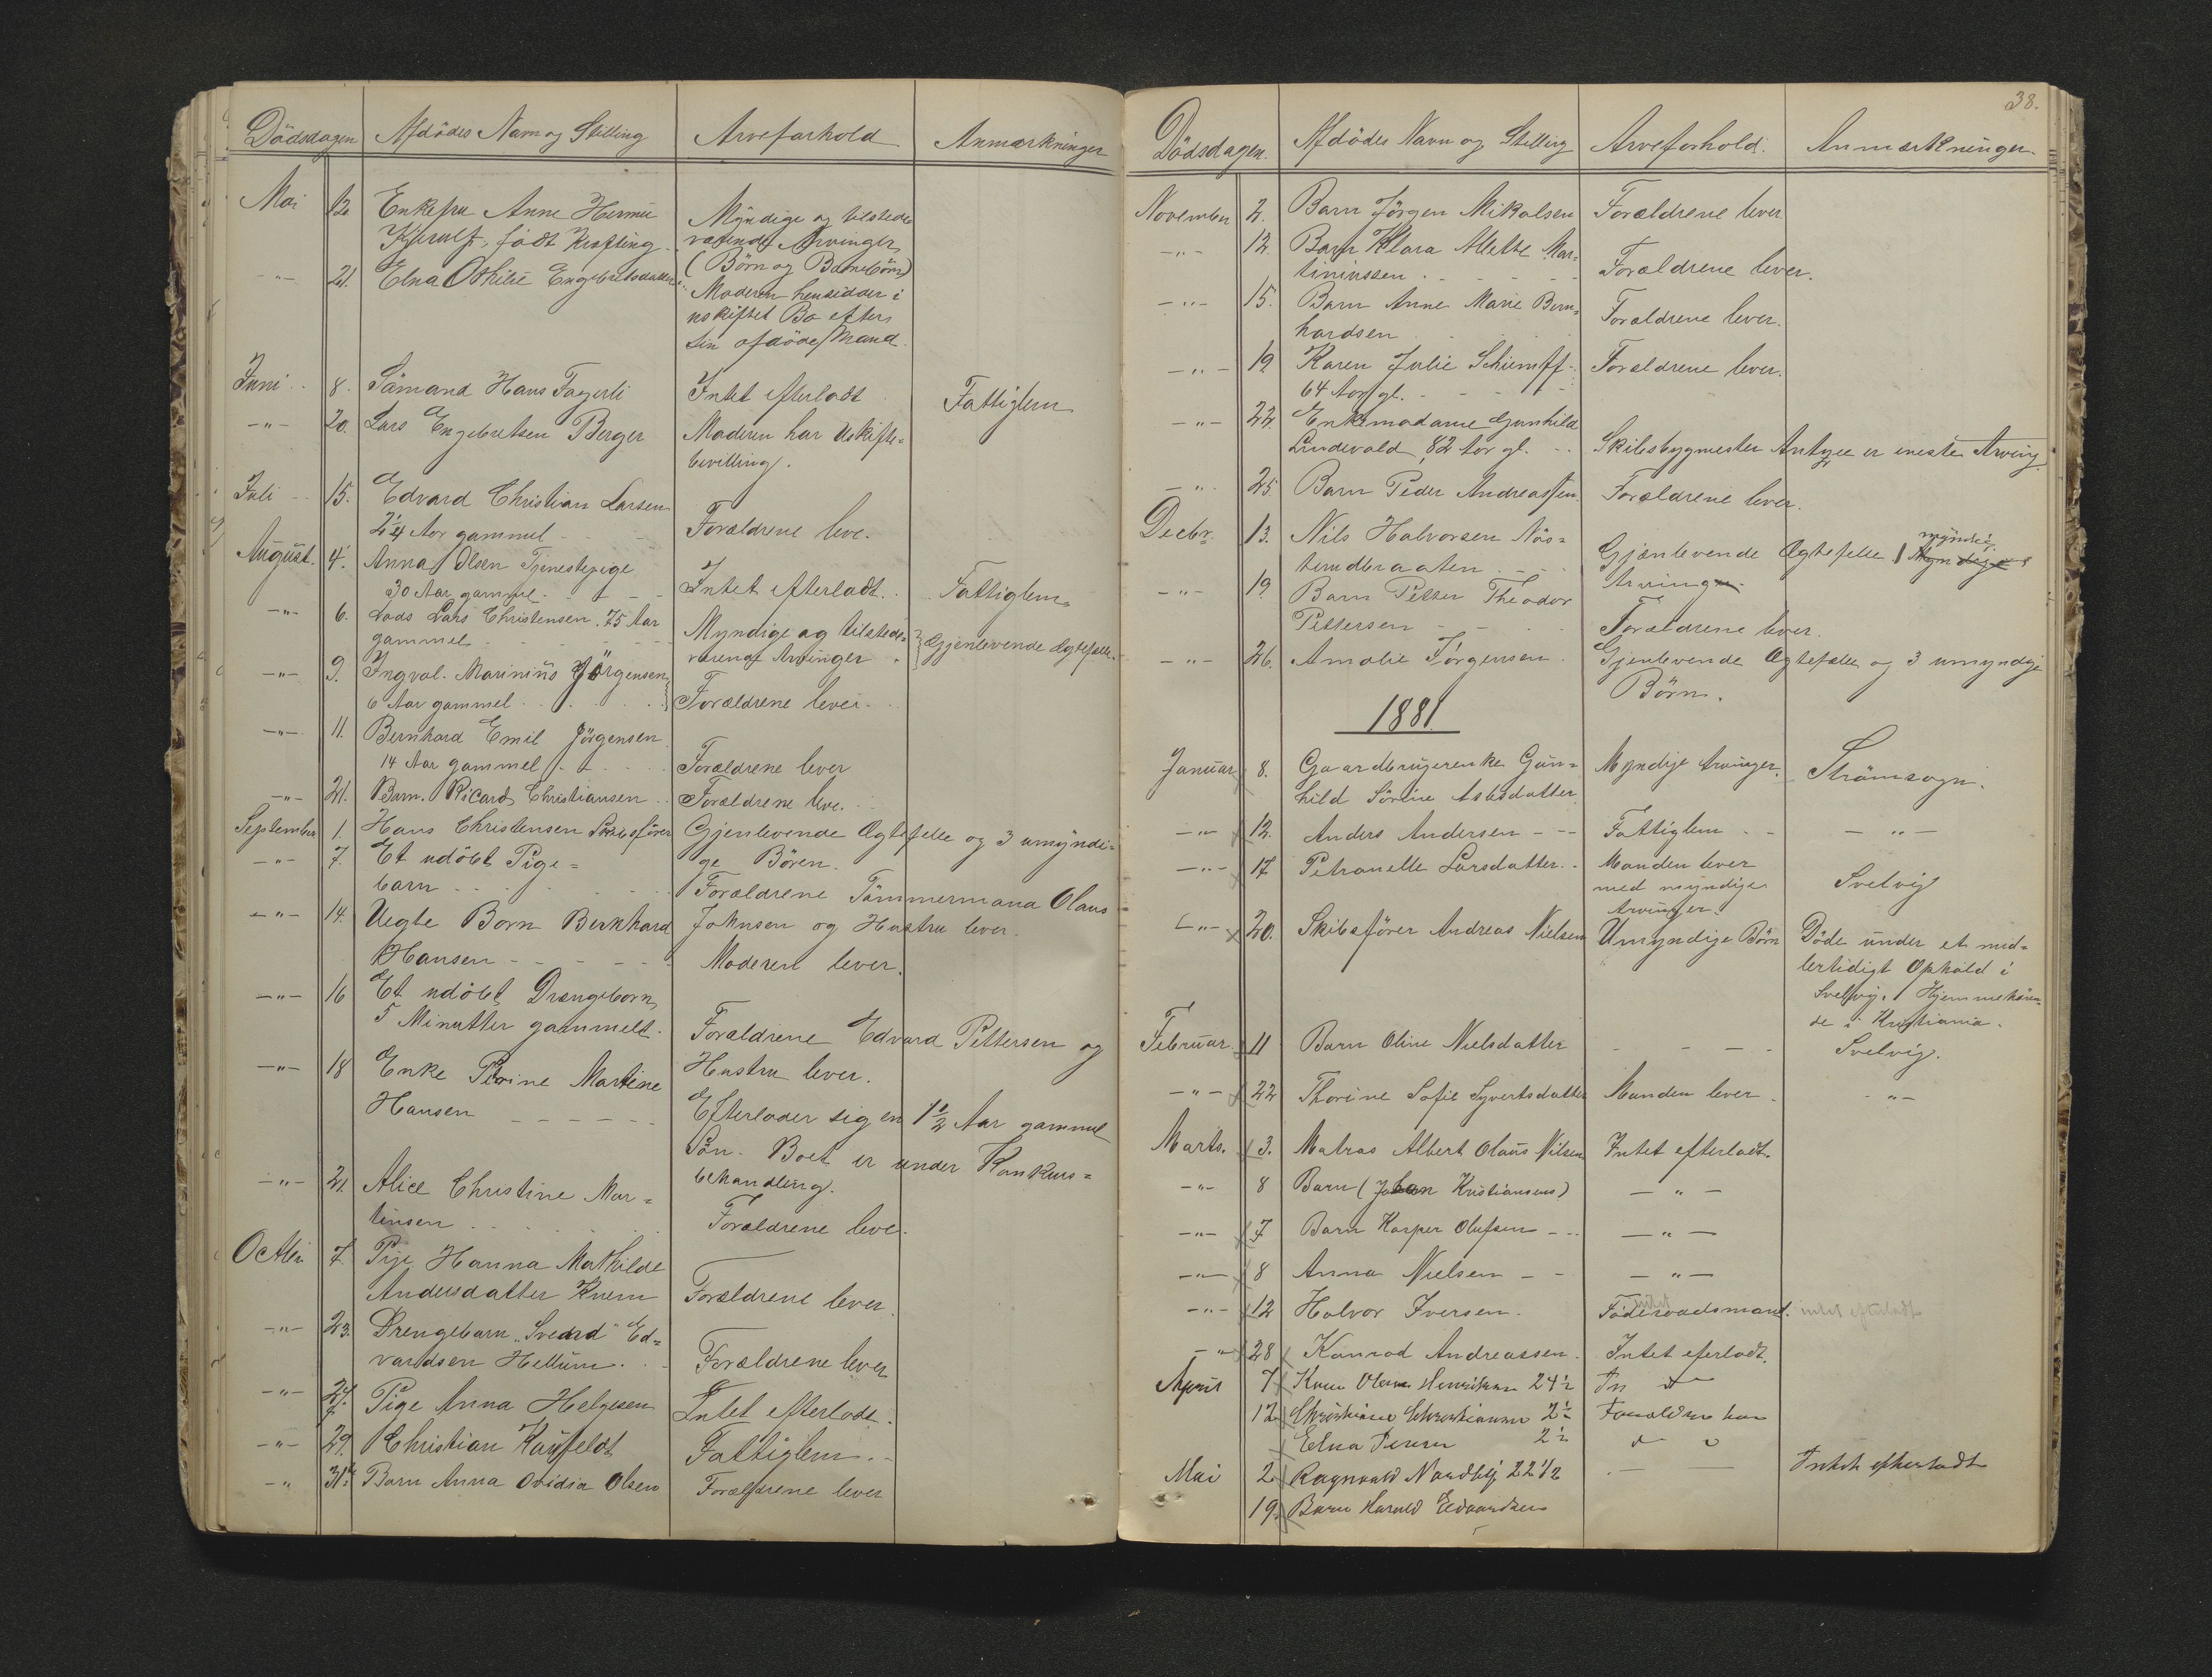 Dödsdagen Afdödes Navn og Stilling Arveforhold Anmærkninger
Mai 12. Enkefru Anne Hermine Myndige og tilstede
Kjerulf, födt Krefting værende Arvinger
(Börn og Barnebörn)
-"- 21. Elna Othilie Engebretsdatter Moderen hensidder i
uskiftet Bo efter
sin afdöde Mand.
Juni 8. Sömand Hans Fagerli Intet efterladt Fattiglem
-"- 20. Lars Engebretsen Berger Moderen har Uskifte=
bevilling.
Juli 15. Edvard Christian Larsen
2 1/4 Aar gammel Forældrene leve.
August. 4. Anna Olsen Tjenestepige
30 Aar gammel Intet efterladt. Fattiglem
-"- 6. Lods Lars Christensen. 75 Aar
gammel Myndige og tilstede=
værende Arvinger Gjenlevende Ægtefælle.
-"- 9. Ingval. Marinius Jörgensen
6 Aar gammel Forældrene lever.
-"- 11. Bernhard Emil Jörgensen
14 Aar gammel Forældrene lever
-"- 21. Barn. Ricard Christiansen Forældrene leve.
September 1. Hans Christensen Skibsförer Gjenlevende Ægtefelle og 3 umyndi=
ge Bören.
-"- 7. Et udöbt Pige=
barn Forældrene Tömmermand Olaus
Johnsen og Hustru lever.
-"- 14. Uegte Barn Bernhard
Hansen Moderen lever.
-"- 16 Et udöbt Drengebarn,
5 Minutter gammelt. Forældrene Edvard Pettersen og
Hustru lever.
-"- 18 Enke Perine Martine
Hansen Efterlader sig en 1 1/2 Aar gammel
Sön. Boet er under Konkurs=
behandling.
-"- 21. Alice Christine Mar=
tinsen Forældrene leve.
Octbr 7. Pige Hanna Mathilde
Andersdatter Knem Forældrene lever.
-"- 23. Drengebarn "Sverd" Ed=
vardsen Hellum. Forældrene lever
-"- 27. Pige Anna Helgesen Intet efterladt.
-"- 29. Christian Kaufeldt Fattiglem.
-"- 31. Barn Anna Ovidia Olsen Forældrene lever
38.
Dödsdagen. Afdödes Navn og Stilling Arveforhold. Anmærkninger.
November 2. Barn Jörgen Mikalsen Forældrene lever
-"- 12. Barn Klara Alette Mar=
tiniussen Forældrene lever.
-"- 15. Barn Anne Marie Bern=
hardsen Forældrene lever.
-"- 19 Karen Julie Schiemff Forældrene lever.
64 Aar gl.
-"- 22. Enkemadame Gunhild
Lindevald, 82 Aar gl. Skibsbygmester Antzee er eneste Arving.
-"- 25. Barn Peder Andreassen Forældrene lever.
Decbr. 13. Nils Halvorsen Nös=
terudbraaten Gjenlevende Ægtefelle 1 Myndige myndig
Arving
-"- 19. Barn Petter Theodor
Pettersen Forældrene lever.
-"- 26. Amalie Jörgensen Gjenlevende Ægtefælle og 3 umyndige
Börn.
1881.
Januar 8. Gaardbrugerenke Gun= Myndige Arvinger. Strömsogn.
hild Sörine Aslesdatter
-"- 12. Anders Andersen Fattiglem -"-
-"- 17 Petronelle Larsdatter. Manden lever
med myndige Svelvig
Arvinger.
-"- 20. Skibsförer Andreas Nielsen Umyndige Börn Döde under et mid=
lertidigt Ophold i
Svelvig. Hjemmehören=
de i Kristiania.
Februar 11 Barn Oline Nielsdatter - - - Svelvig.
-"- 22 Thorine Sofie Syvertsdatter Manden lever. -"-
Marts. 3. Matros Albert Olaus Nilsen Intet efterladt.
-"- 8 Barn (Johan Kristiansens) -"-
-"- 7 Barn Kasper Olufsen -"-
-"- 8 Anna Nielsen -"-
-"- 12 Halvor Iversen. Föderaadsmand. intet efterladt
-"- 28 Konrad Andreassen. Intet eferladt.
April 7 Henriksen 24 1/2
12 Christiansen 2 1/2 Forældrene
Elna 2 1/2
Mai 2. Ragnvald 22 1/2 Intet efterladt
19. Barn Harald Edvardsen